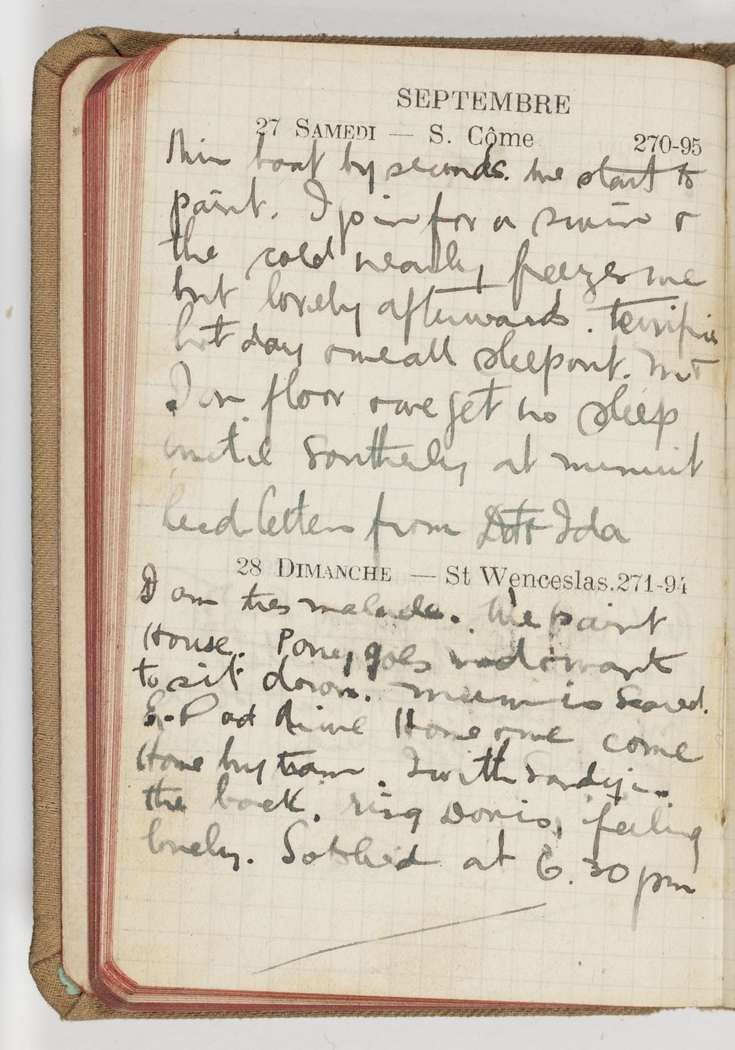 SEPTEMBRE
27 SAMEDI — S. Côme 270-95
boat by seconds. We start to
paint. I join for a swim &
the cold nearly freezes me
but lovely afterwards. terrific
hot day & we all sleep out.
I on floor & we get no sleep
until Southerly at minuit
letters from Ida
28 DIMANCHE — St Wenceslas. 271-94
I am tres malade. We paint
House. Pony goes and wants
to sit down. Mum is Scared.
Home & me come
Home by tram. I with Sandy in
the back. ring Doris, feeling
lonely. So to bed at 6.30 pm